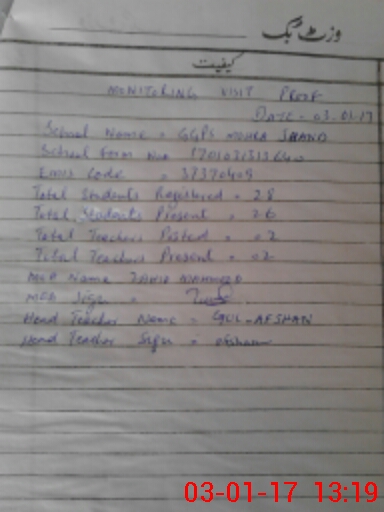 وزٹ بک
کیفیت
MONITORING VISIT PROOF
DATE = 03.01.17
School Name = GGPS MOHRA
School Form No =
Emis Code = 37370409
Total Students Registered = 28
Total Students Present = 26
Total Teachers Posted = 02
Total Teachers Present = 02
MEA Name
MEA Sign =
Head Teacher Name = GUL-AFSHAN
Head Teacher Sign = afshan
03-01-17 13:19